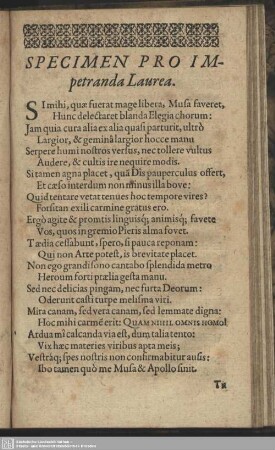 SPECIMEN PRO IM-
petranda Laurea.
SI mihi, quæ fuerat mage libera, Musa faveret,
Hunc delectaret blanda Elegia chorum:
Jam quia cura alia ex alia quasi parturit, ultrò
Largior, & geminâ largior hocce manu
Serpere humi nostros versus, nec tollere vultus
Audere, & cultis ire nequire modis.
Si tamen agna placet, quâ Dîs pauperculus offert,
Et cæso interdum non minus illa bove:
Quid tentare vetat tenues hoc tempore vires?
Forsitan exili carmine gratus ero.
Ergò agite & promtis linguisq́; animisq́; favete
Vos, quos in gremio Pieris alma fovet.
Tædia cessabunt, spero, si pauca reponam:
Qui non Arte potest, is brevitate placet.
Non ego grandisono cantabo splendida metro
Heroum forti prælia gesta manu.
Sed nec delicias pingam, nec furta Deorum:
Oderunt casti turpe melisma viri.
Mira canam, sed vera canam, sed lemmate digna:
Hoc mihi carmē erit: QUAM NIHIL OMNIS HOMO!
Ardua mî calcanda via est, dum talia tento:
Vix hæc materies viribus apta meis;
Vestràq; spes nostris non confirmabitur ausis:
Ibo tamen quò me Musa & Apollo sinit.